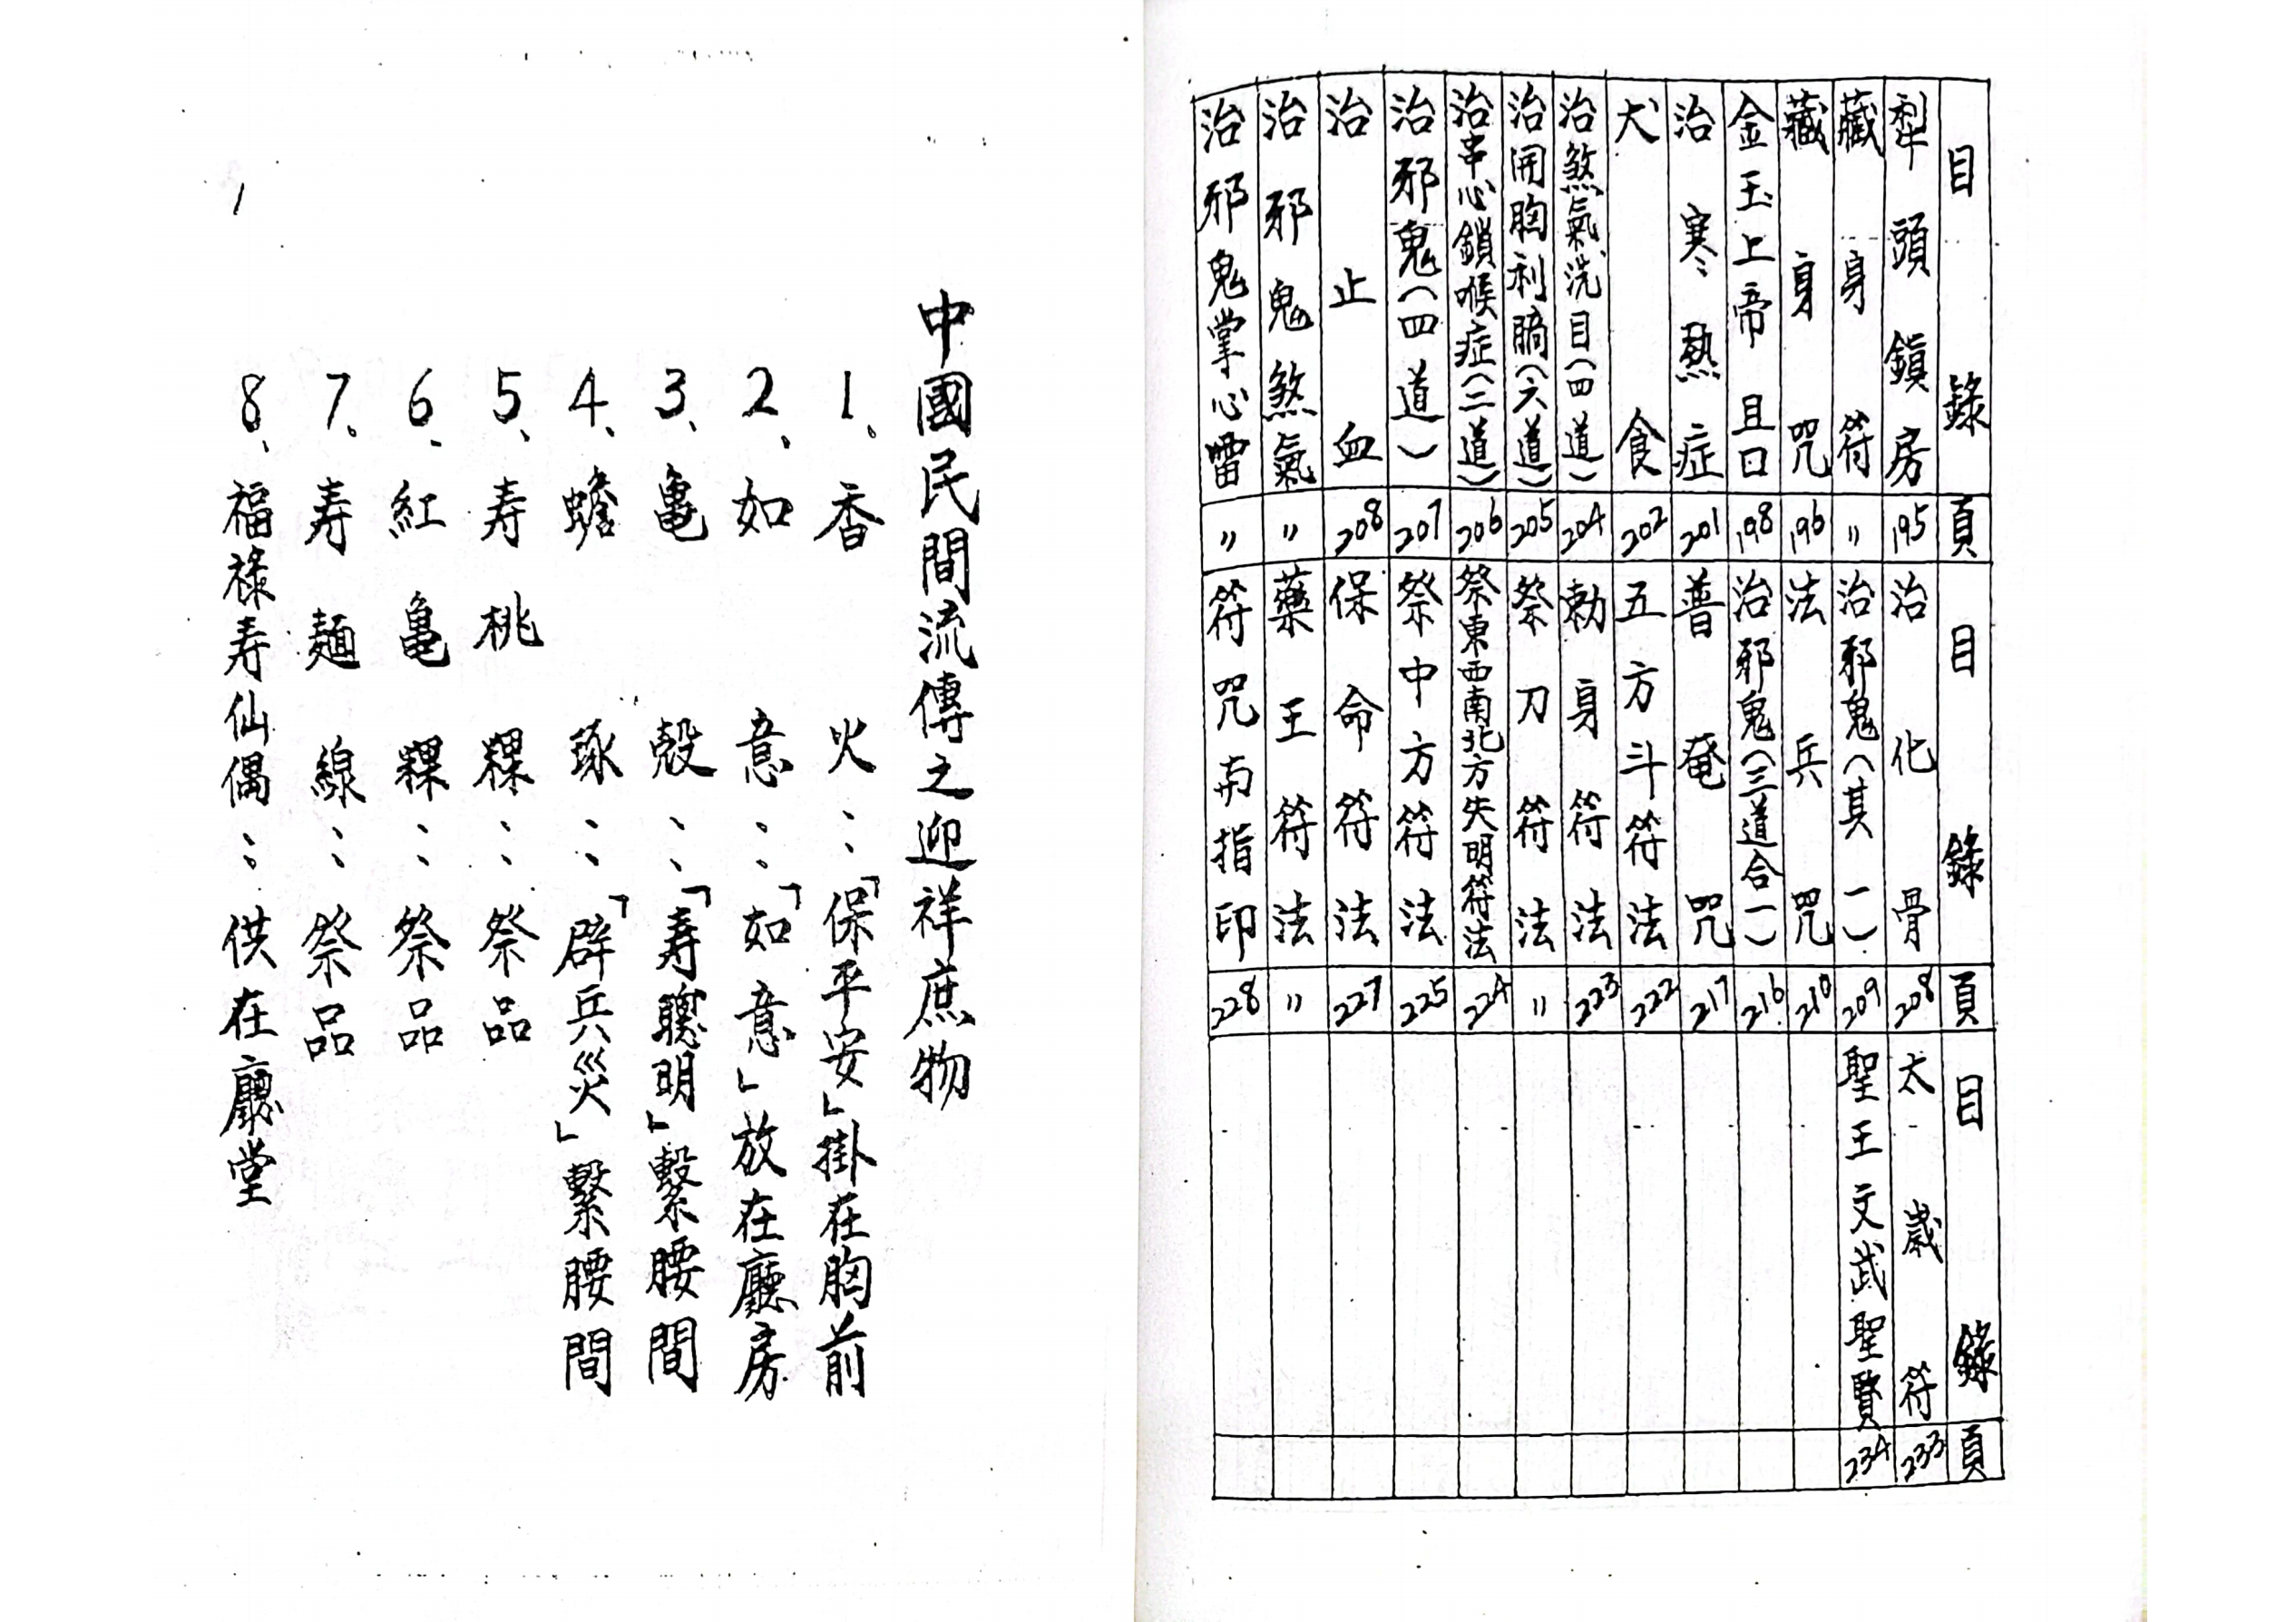 目錄 頁 目錄 頁 目錄 頁
犁頭鎖房 195 治化骨 208 太歲符 233
藏身符 〃 治邪鬼(其一) 209 聖王文武聖賢 234
藏身咒 196 法兵咒 210
金玉上帝且口 198 治邪鬼(三道合一) 216
治寒熱症 201 普奄咒 217
犬食 202 五方斗符法 222
治煞氣洗目(四道) 204 勅身符法 223
治開胸利膈(六道) 205 祭刀符法 〃
治串心鎖喉症(二道) 206 祭東西南北方失明符法 224
治邪鬼(四道) 207 祭中方符法 225
治止血 208 保命符法 227
治邪鬼煞氣 〃 藥王符法 〃
治邪鬼掌心雷 〃 符咒與指印 228
中國民間流傳之迎祥庶物
1、香火:「保平安」掛在胸前
2、如意:「如意」放在廳房
3、龜殼:「寿聰明」繫腰間
4、蟾琢:「辟兵災」繫腰間
5、寿桃粿:祭品
6、紅龜粿:祭品
7、寿麵線:祭品
8、福祿寿仙偶:供在廳堂
1